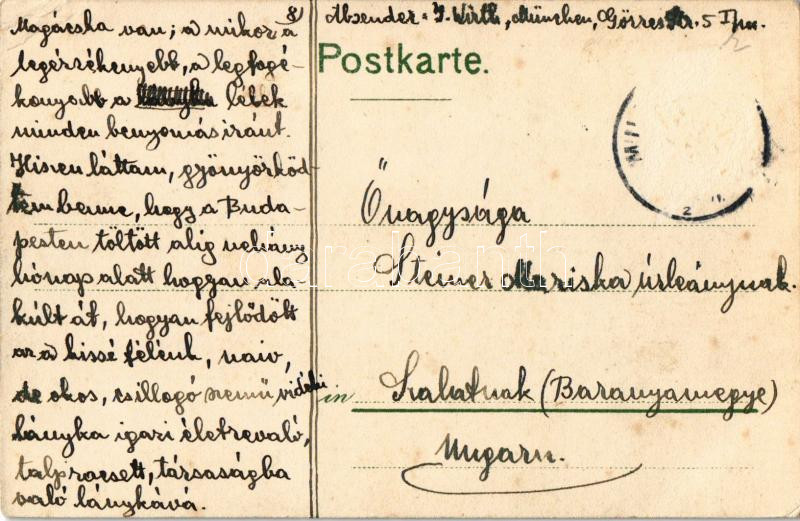 8)
Magácska van; a mikor a
legérzékenyebb, a legfogé-
konyabb a lélek
minden benyomás iránt.
Hiszen láttam, gyönyörköd-
tem benne, hogy a Buda-
pesten töltött alig néhány
hónap alatt hogyan ala-
kult át, hogyan fejlődött
az a kissé félénk, naiv,
de okos, csillogó szemű vidéki
lányka igazi életrevaló,
talpraesett, társaságba
való lánykává.
Absender: J. Wirth, München, Görresstr. 5 I/m.
2
Postkarte.
Őnagysága
Steiner Mariska úrleánynak.
in Szalatnak (Baranyamegye)
Ungarn.
darabanth